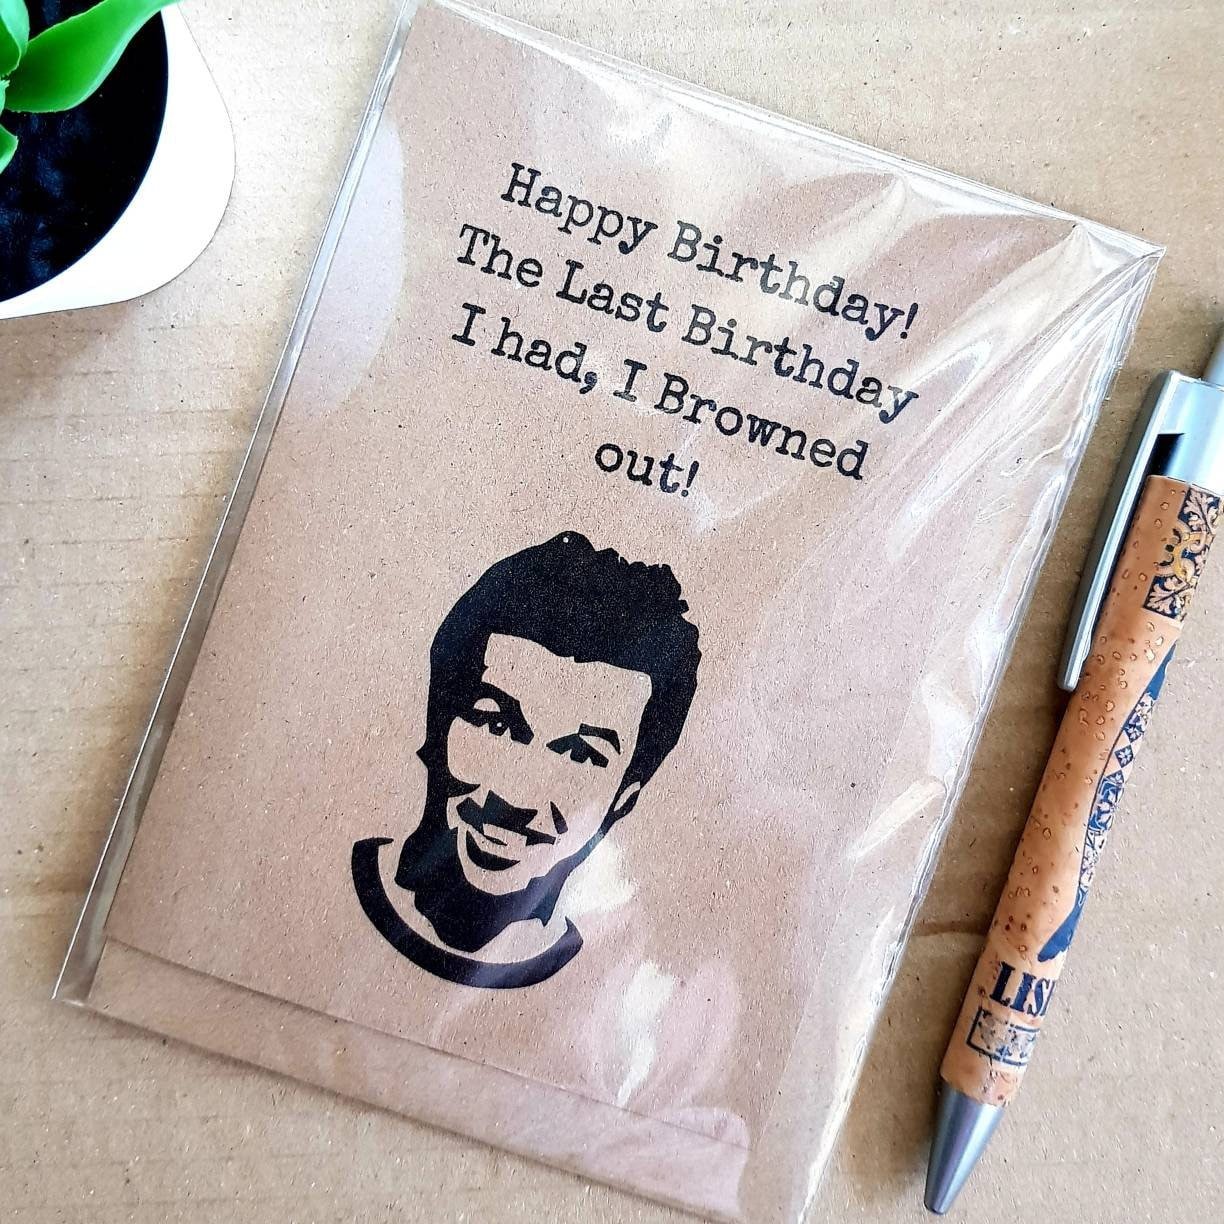 Happy Birthday!
The Last Birthday
I had, I Browned
out!